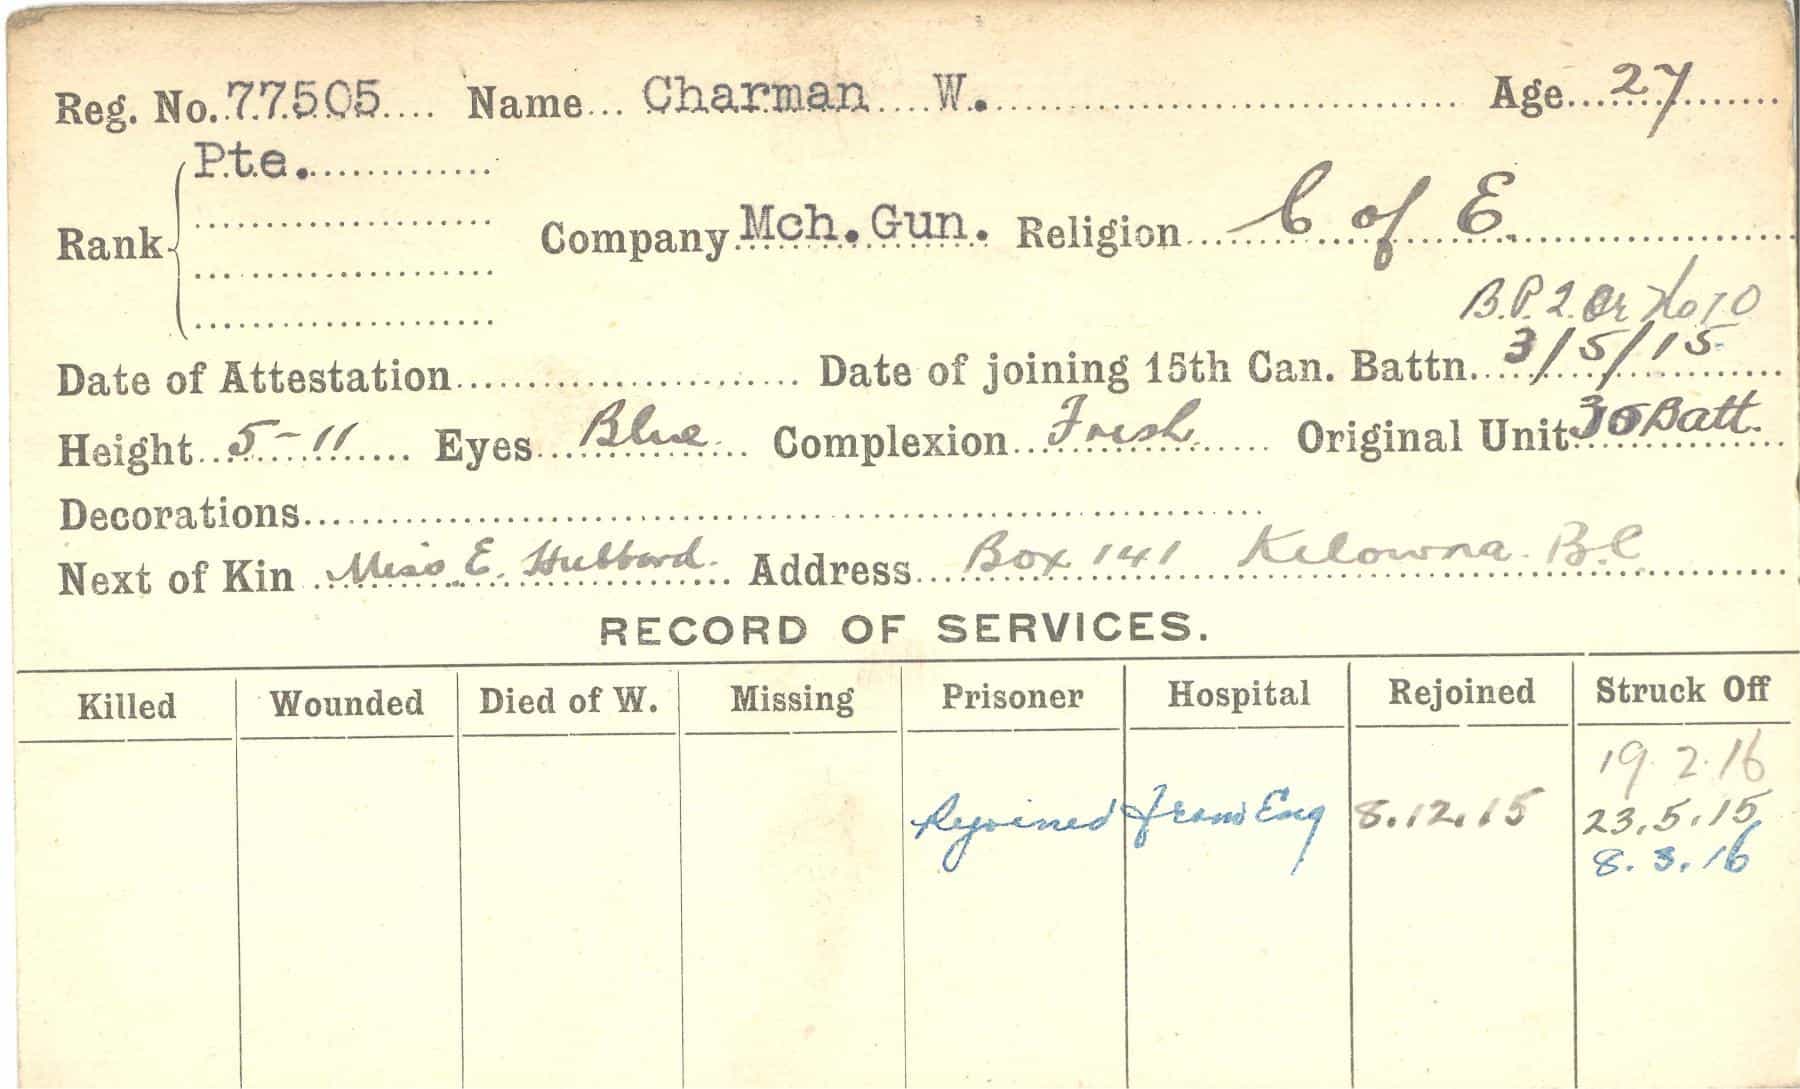 Reg. No. 77505 Name Charman W. Age 27
Pte.
Rank Company Mch. Gun. Religion C of E.
B.P.2. Or No 70
Date of Attestation Date of joining 15th Can. Battn. 3/5/15
Height 5-11 Eyes Blue Complexion Fresh Original Unit 30 Batt.
Decorations
Next of Kin Miss E. Hubbard. Address Box 141 Kelowna. B.C
RECORD OF SERVICES.
Killed Wounded Died of W. Missing Prisoner Hospital Rejoined Struck Off
19.2.16
Rejoined from Eng 8.12.15 23.5.15
8.3.16